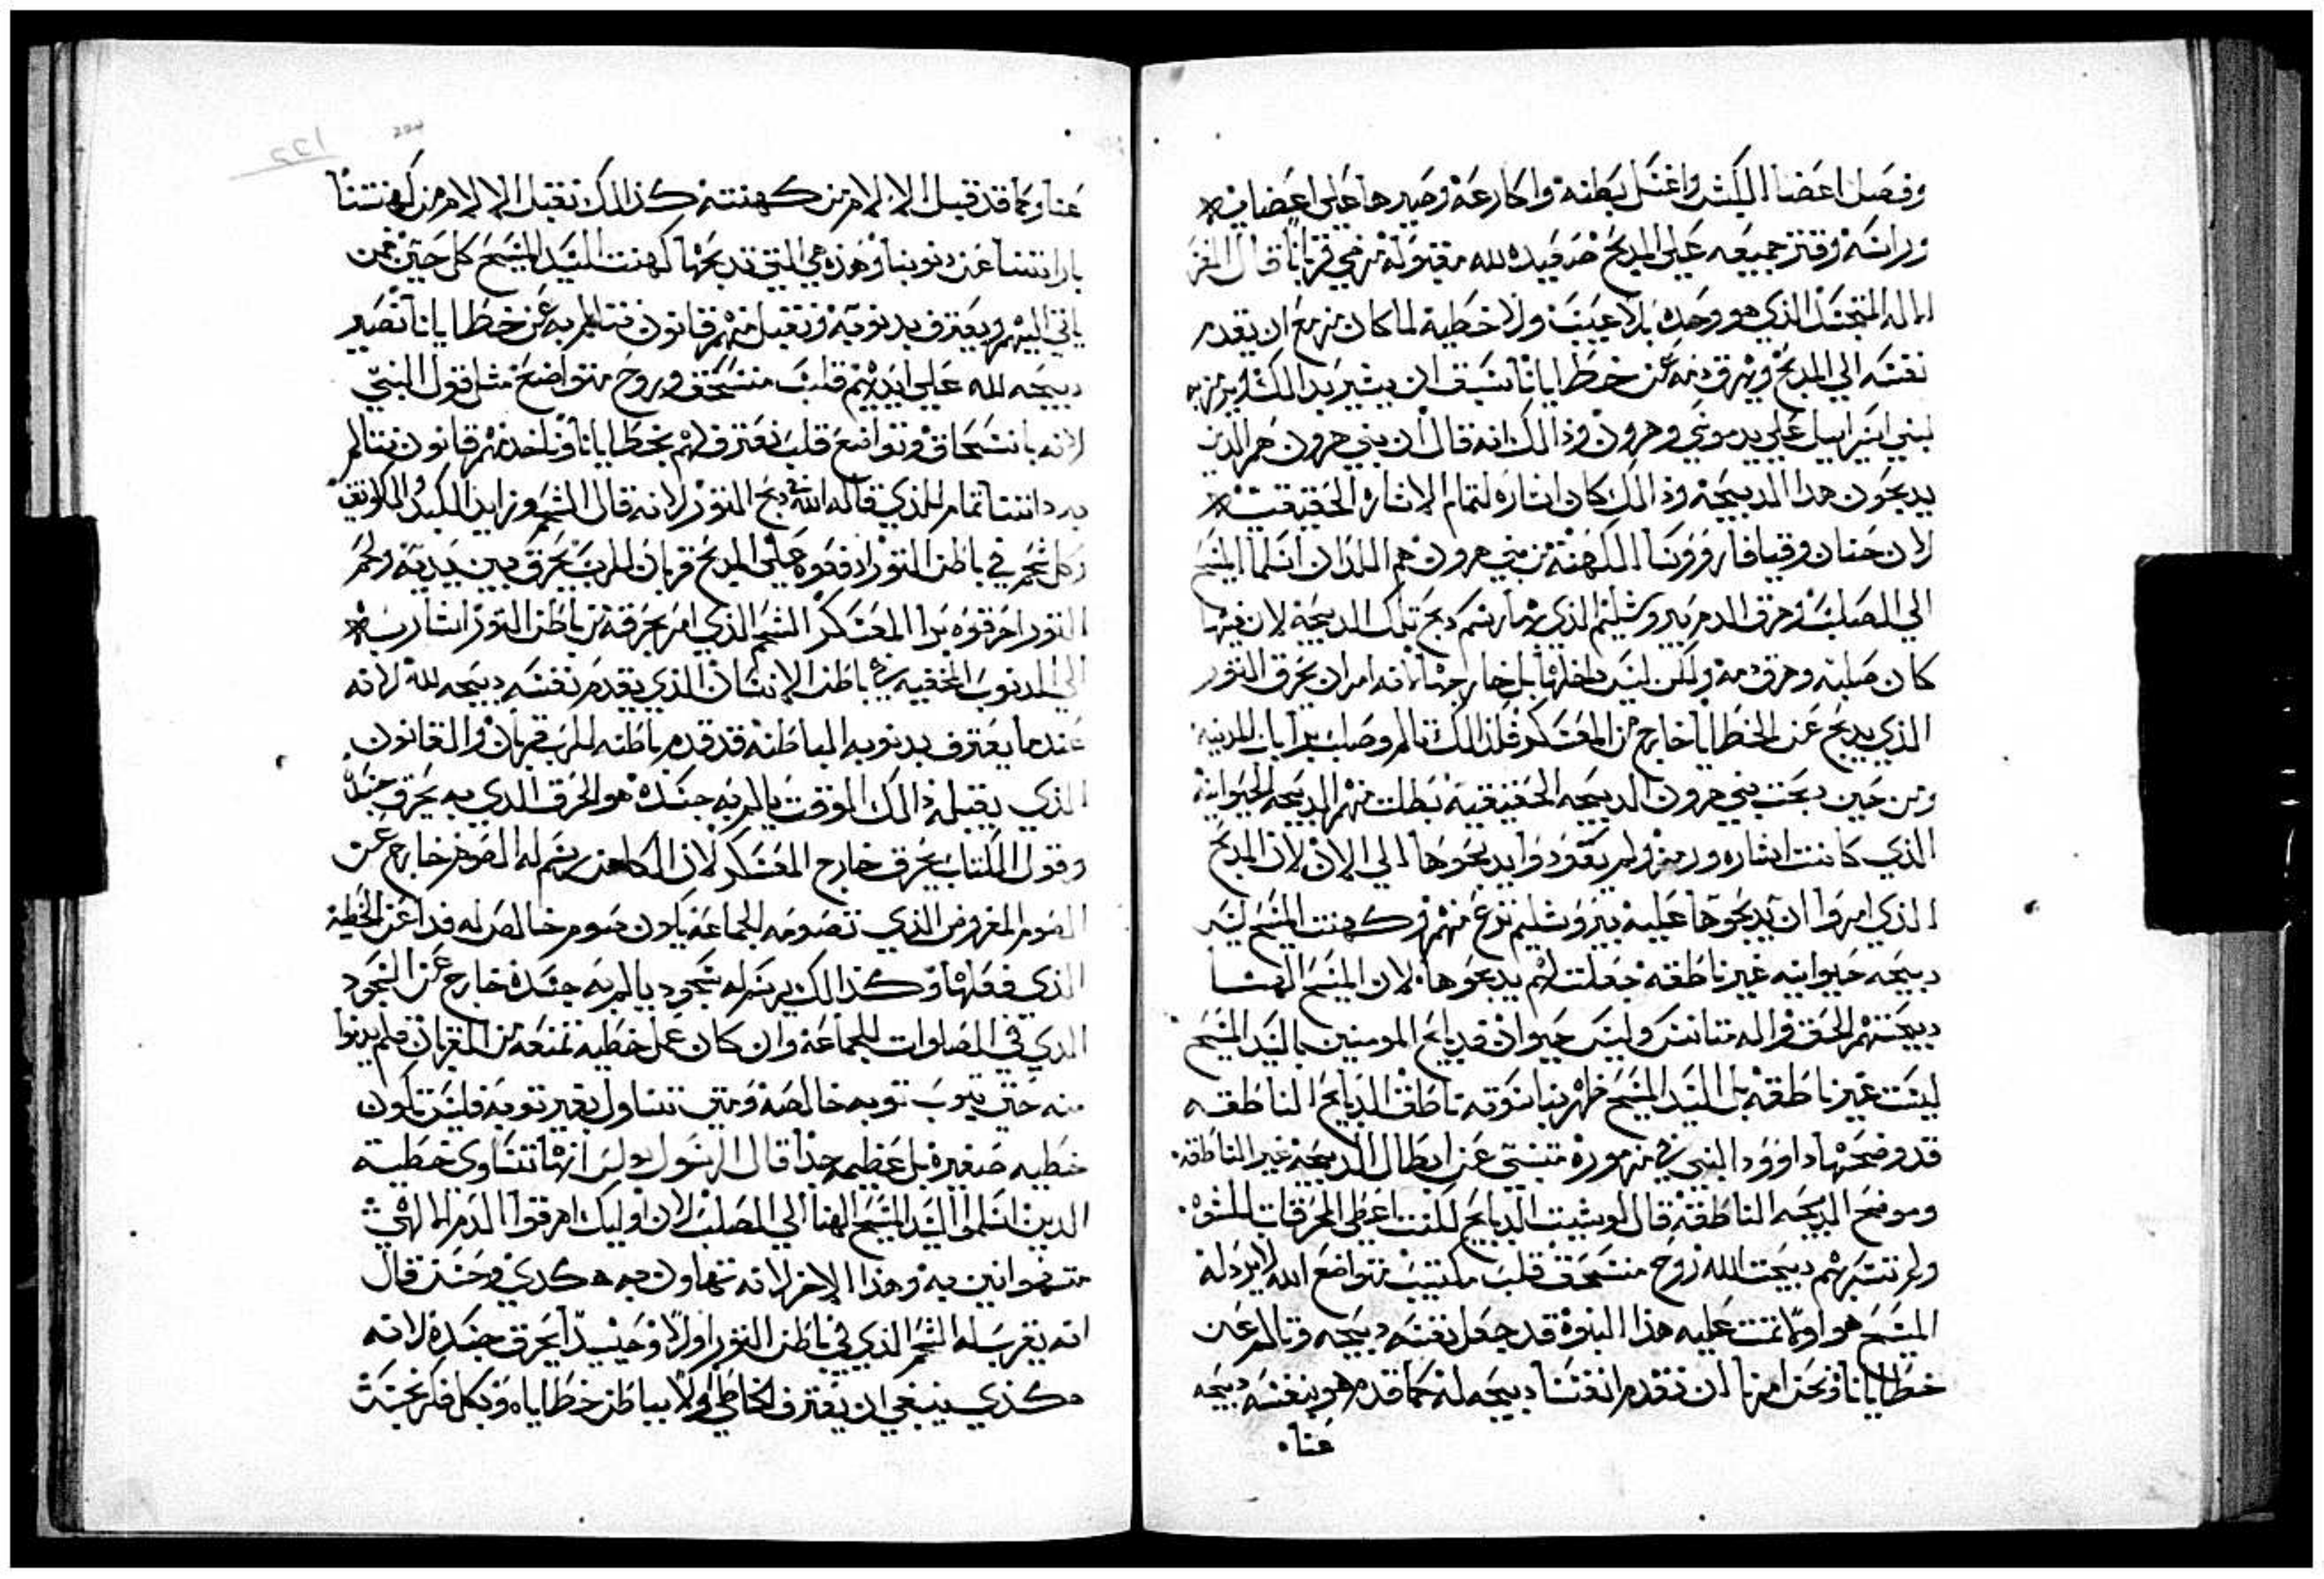 وفصل اعضا الكبش واغسل بطنه واكارعه وصيرها علي اعضايه
وراسه وقتر جميعه علي المدبح صعيده لله مقبوله هي قربانا قال المفسر
الاله المتجسد الذي هو وحده بلا عيب ولا خطية لما كان مزمع ان يقدم
نفسه الي المدبح ويهرق دمه عن خطايانا سبق ان يشير بدالك ويرمز به
لبني اسراييل علي يد موسي وهرون وذالك انه قال ان بني هرون هم الدين
يدبحون هدا الدبيحه وذالك كان اشاره لتمام الاشاره الحقيقيه
لان حنان وقيافا روووسا الكهنة من بني هرون هم اللدان اسلما المسيح
الي الصلب وهرق الدم بيروشليم الذي بها رسم دبح تلك الدبيحه لان فيها
كان صلبه وهرق دمه ولكن ليس داخلها بل خارجها لانه امر ان يحرق التور
الذي يدبح عن الخطايا خارج من المعسكر فلذالك تالم وصلب برا باب المدينه
ومن حين دبحت بني هرون الدبيحه الحقيقيه بطلت منهم الدبيحه الحيوانيه
الذي كانت اشاره ورمز ولم يعودوا يدبحوها الي الان لان المدبح
الذي امروا ان يدبحوها عليه بيروشليم نزع منهم وكهنت المسيح ليس
دبيحه حيوانيه غير ناطقه جعلت لهم يدبحوها لان المسيح الهنا
دبيحتهم الحق واله متانس وليس حيوان فدبايح المومنين بالسيد المسيح
ليست غير ناطقه بل السيد المسيح ظهر بناسوته ناطق الدبايح الناطقه
قد وضحها داوود النبي في مزموره متنبي عن ابطال الدبيحه غير الناطقه
وموضع الدبيحه الناطقه قال لو شيت الدبايح لكنت اعطي المحرقات المشوه
ولم تسر بهم دبيحت الله روح منسحق قلب مكتيب متواضع الله لا يردله
المسيح هو اولا تمت عليه هذا النبوه قد جعل نفسه دبيحه وتالم عن
خطايانا ونحن امرنا ان نقدم انفسنا دبيحه له كما قدم هو بنفسه دبيحه
عنا
عنا وكما قد قبل الالام من كهنته كذالك نقبل الالام من كهنتنا
بارادتنا عن دنوبنا وهذه هي التي تدبحها كهنت السيد المسيح كل حين فمن
ياتي اليهم ويعترف بدنوبه وتقبل منهم قانون يتالم به عن خطايانا تصير
دبيحه لله علي ايديهم قلب منسحق وروح متواضع مثل قول النبي
لانه بانسحاق وتواضع قلب نعترف لهم بخطايانا وناخد منهم قانون نتالم
به داتنا تمام للذي قاله الله في دبح التور لانه قال الشحم وزايد الكبد والكلوتين
وكل شحم في باطن التور ارفعوه علي المدبح قربان للرب يحرق بين يديه ولحم
التور احرقوه برا المعسكر الشحم الذي امر بحرقه من باطن التور اشار به
الي الدنوب المخفيه في باطن الانسان الذي يقدم نفسه دبيحه لله لانه
عندما يعترف بدنوبه الباطنه قد قدم باطنه للرب قربان والقانون
الذي يقبله دالك الوقت يالم به جسده هو الحرق الذي به يحرق جسده
وقول الكتاب يحرق خارج المعسكر لان الكاهن يرسم له الصوم خارج عن
الصوم المفروض الذي تصومه الجماعه يكون صوم خالص له فدا عن الخطيه
الذي فعلها وكذالك يرسم له سجود يالم به جسده خارج عن السجود
الذي في الصلوات للجماعه وان كان عمل خطيه تمنعه من القربان فلم يدنوا
منه حتي يتوب توبه خالصه ومتي تناول بغير توبه فليس تكون
خطيه صغيره بل عظيمه جدا قال الرسول بولس انها تتساوي خطية
الدين اسلموا السيد المسيح الهنا الي الصلب لان اوليك اهرقوا الدم الالهي
متهوانين به وهذا الاخر لانه تهاون به هكدي وحسن قال
انه يقرب له الشحم الذي في باطن التور اولا وحينيد يحرق جسده لانه
هكذي ينبغي ان يعترف الخاطي اولا بباطن خطاياه وبكل فكر نجس